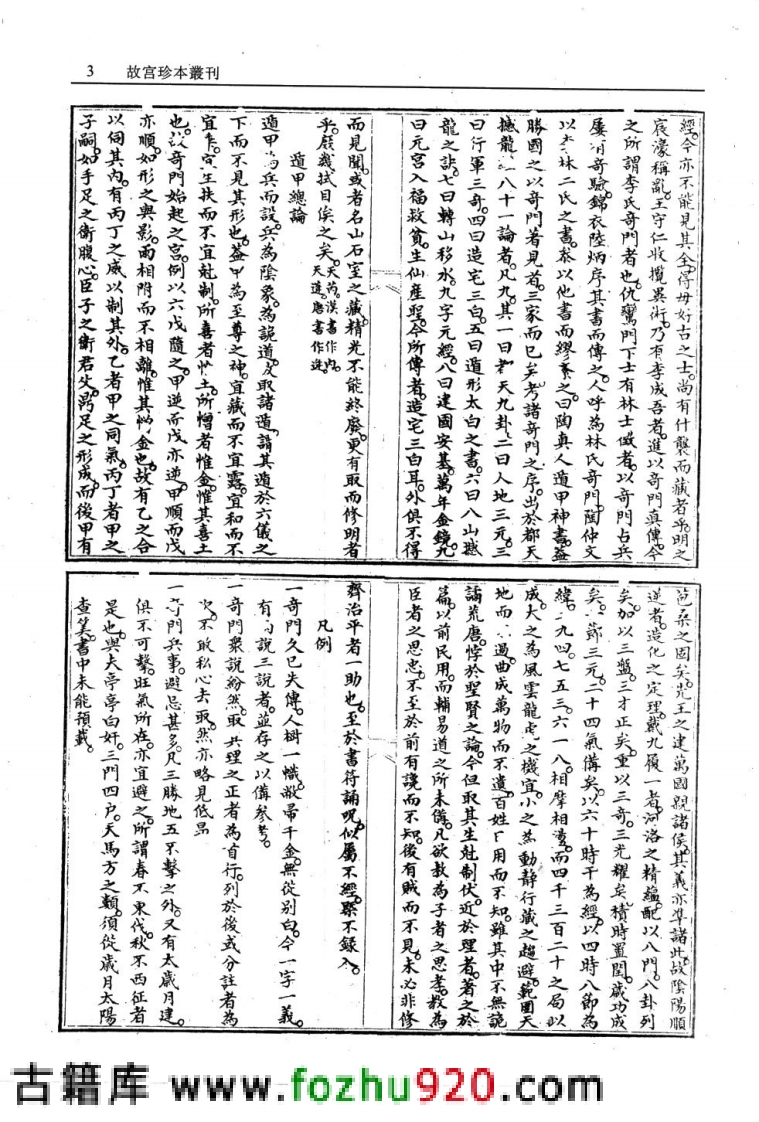 3 故宫珍本叢刊
經今亦不能見其全得毋好古之士尚有什襲而藏者乎明之
宸濠稱亂王守仁收攬異術乃有李成吾者進以奇門真傳今
之所謂李氏奇門者也仇鸞門下士有林士徵者以奇門占兵
屢有奇驗錦衣陸炳序其書而傳之人呼為林氏奇門陶仲文
以 林二氏之書叅以他書而繆 之曰陶真人遁甲神書益
勝國之以奇門著見者三家而已矣考諸奇門之序出於都天
撼龍 八十一論者凡九其一曰 天九卦二曰人地三元三
曰行軍三奇四曰造宅三白五曰遁形太白之書六曰八山撼
龍之訣七曰轉山移水九字元經八曰建國安基萬年金鏡九
曰元宫入福救貧生仙産聖今所傳者造宅三白耳外俱不得
而見聞或者名山石室之藏精光不能終廢更有取而修明者
乎願拭目俟之矣天芮漢書作内天逆唐書作逆
遁甲總論
遁甲為兵而設兵為陰象為詭道 取諸遁謂其遁於六儀之
下而不見其形也蓋甲為至尊之神宜藏而不宜露宜和而不
宜乍宜生扶而不宜尅制所喜者惟土所憎者惟金惟其喜土
也故奇門始起之宫例以六戊隨之甲逆而戊亦逆甲順而戊
亦順如形之與影兩相附而不相離惟其憎金也故有乙之合
以伺其内有丙丁之威以制其外乙者甲之同氣丙丁者甲之
子嗣如手足之衛腹心臣子之衛君父鼎足之形成而後甲有
苞桑之固矣先王之建萬國親諸侯其義亦準諸此故陰陽順
逆者造化之定理戴九履一者河洛之精蘊配以八門八卦列
矣加以三盤三才正矣重以三奇三光耀矣積時置閏歲功成
矣 節三元二十四氣備矣以六十時干為經以四時八節為
緯 二九四七五三六一八相摩相盪而四千三百二十之局以
成大之為風雲龍虎之機宜小之為動静行藏之趨避範圍天
地而 過曲成萬物而不遺百姓日用而不知雖其中不無詭
譎荒唐悖於聖賢之論今但取其生尅制伏近於理者著之於
篇以前民用而輔易道之所未備凡欲教為子者之思孝教為
臣者之思忠不至於前有讒而不知後有賊而不見未必非修
齊治平者一助也至於書符誦呪似屬不經槩不録入
凡例
一奇門久已失傳人樹一幟敝帚千金無從别白今一字一義
有 説三説者並存之以備參考
一奇門衆説紛然取其理之正者為首行列於後或分註者為
次不敢私心去取然亦略見低昂
一奇門兵事避忌甚多凡三勝地五不擊之外又有太歲月建
俱不可擊旺氣所在亦宜避之所謂春不東伐秋不西征者
是也與夫亭亭白奸三門四户天馬方之類須從歲月太陽
查筭書中未能預載
古籍库 www.fozhu920.com